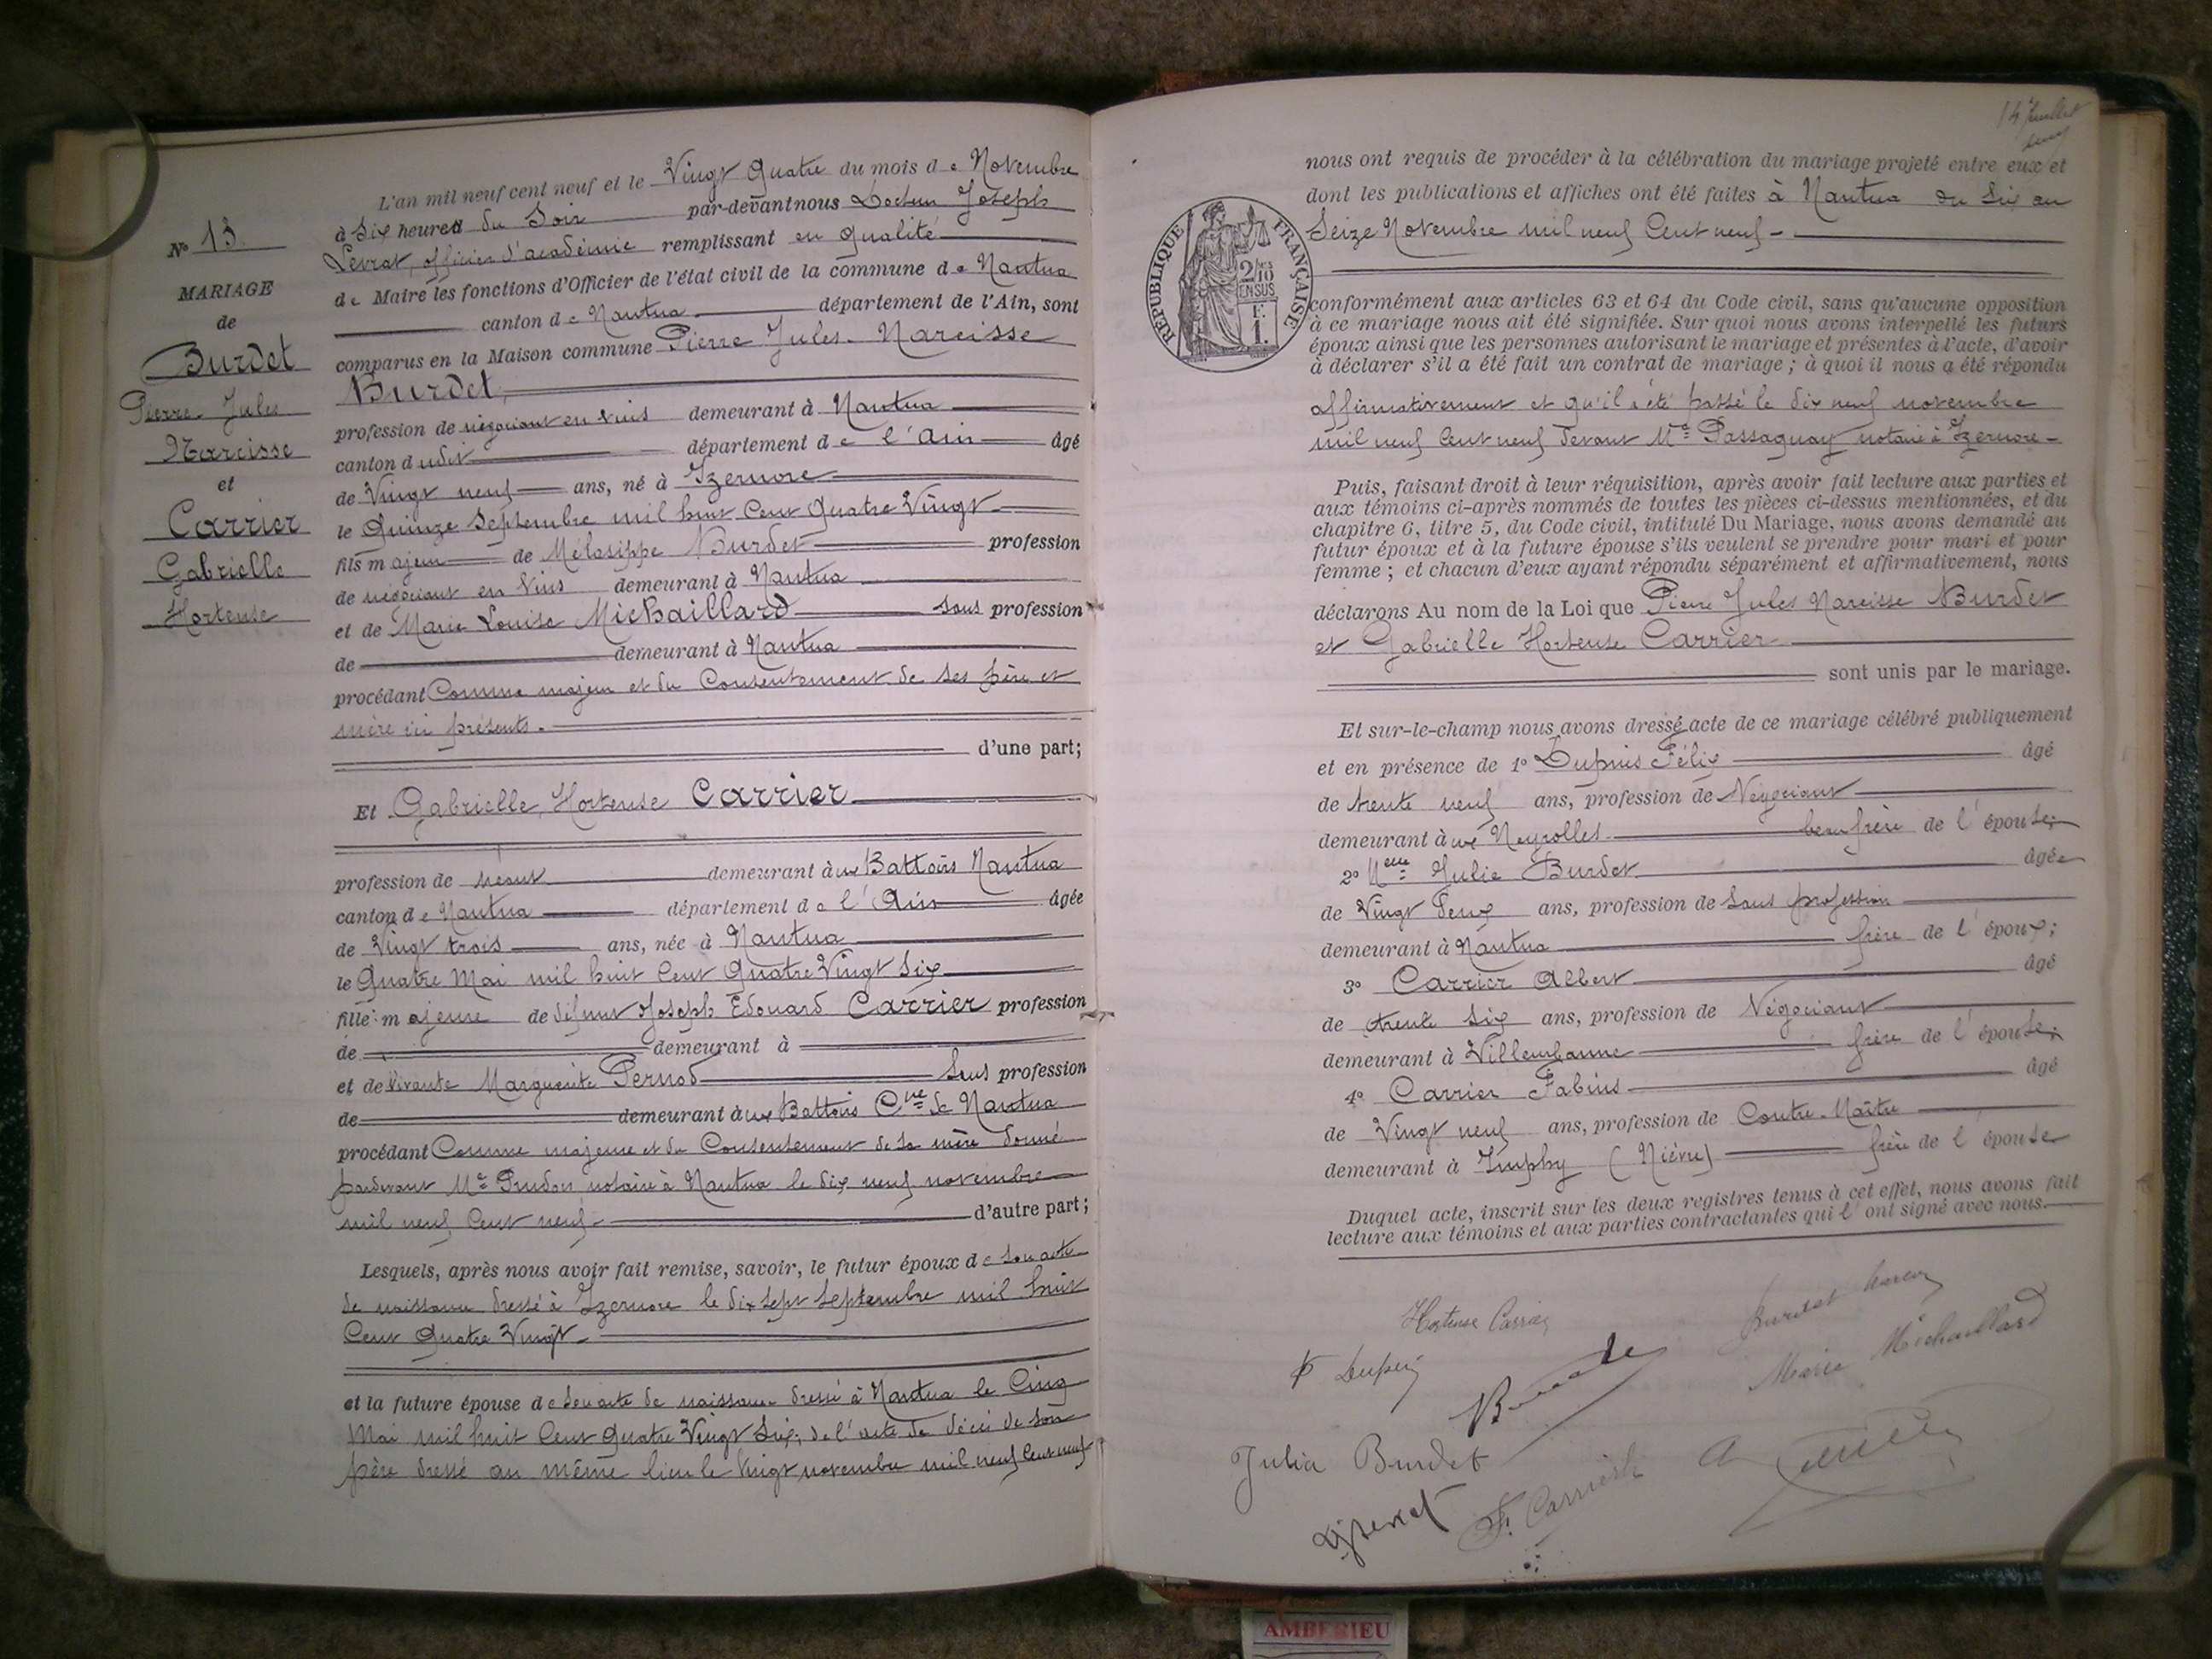 L'an mil neuf cent neuf et le Vingt Quatre du mois de Novembre
à Six heures du Soir par-devant nous Docteur Joseph
Levrat, officier d'académie remplissant en qualité
de Maire les fonctions d'Officier de l'état civil de la commune de Nantua
canton de Nantua département de l'Ain, sont
comparus en la Maison commune Pierre Jules Narcisse
Burdet,
profession de négociant en vins demeurant à Nantua
canton dudit département de l'Ain âgé
de Vingt neuf ans, né à Izernore
le Quinze Septembre mil huit Cent Quatre Vingt
fils majeur de Mélasippe Burdet profession
de négociant en Vins demeurant à Nantua
et de Marie Louise Michaillard sans profession
de demeurant à Nantua
procédant Comme majeur et du Consentement de ses père et
mère ici présents.
d'une part;
Et Gabrielle, Hortense Carrier
profession de néant demeurant aux Battoirs Nantua
canton de Nantua département de l'Ain âgée
de Vingt trois ans, née à Nantua
le Quatre Mai mil huit Cent Quatre Vingt Six
fille majeure de défunt Joseph Edouard Carrier profession
de demeurant à
et de vivante Marguerite Pernod Sans profession
de demeurant aux Battoirs Cne de Nantua
procédant Comme majeure et du Consentement de sa mère donné
pardevant Me Prudon notaire à Nantua le dix neuf novembre
mil neuf Cent neuf
d'autre part;
Lesquels, après nous avoir fait remise, savoir, le futur époux de son acte
de naissance dressé à Izernore le dix sept Septembre mil huit
Cent Quatre Vingt
et la future épouse de son acte de naissance dressé à Nantua le Cinq
Mai mil huit Cent Quatre Vingt Six, de l'acte de décès de son
père dressé au même lieu le Vingt novembre mil neuf Cent neuf
No 13
MARIAGE
de
Burdet
Pierre Jules
Narcisse
et
Carrier
Gabrielle
Hortense
14 Juillet
nous ont requis de procéder à la célébration du mariage projeté entre eux et
dont les publications et affiches ont été faites à Nantua du Six au
Seize Novembre mil neuf Cent neuf
RÉPUBLIQUE FRANÇAISE
2/10
EN SUS
F.
1.
conformément aux articles 63 et 64 du Code civil, sans qu'aucune opposition
à ce mariage nous ait été signifiée. Sur quoi nous avons interpellé les futurs
époux ainsi que les personnes autorisant le mariage et présentes à l'acte, d'avoir
à déclarer s'il a été fait un contrat de mariage ; à quoi il nous a été répondu
affirmativement et qu'il a été passé le dix neuf novembre
mil neuf Cent neuf devant Me Passaquay notaire à Izernore
Puis, faisant droit à leur réquisition, après avoir fait lecture aux parties et
aux témoins ci-après nommés de toutes les pièces ci-dessus mentionnées, et du
chapitre 6, titre 5, du Code civil, intitulé Du Mariage, nous avons demandé au
futur époux et à la future épouse s'ils veulent se prendre pour mari et pour
femme ; et chacun d'eux ayant répondu séparément et affirmativement, nous
déclarons Au nom de la Loi que Pierre Jules Narcisse Burdet
et Gabrielle Hortense Carrier
sont unis par le mariage.
Et sur-le-champ nous avons dressé acte de ce mariage célébré publiquement
et en présence de 1o Dupuis Félix âgé
de trente neuf ans, profession de Négociant
demeurant aux Neyrolles beau frère de l'épouse;
2o Melle Julie Burdet âgée
de Vingt deux ans, profession de Sans profession
demeurant à Nantua frère de l'époux;
3o Carrier Albert âgé
de trente six ans, profession de Négociant
demeurant à Villeurbanne frère de l'épouse;
4o Carrier Fabius âgé
de Vingt neuf ans, profession de Contre-Maître
demeurant à Imphy (Nièvre) frère de l'épouse
Duquel acte, inscrit sur les deux registres tenus à cet effet, nous avons fait
lecture aux témoins et aux parties contractantes qui l'ont signé avec nous.
Hortense Carrier
Burdet
Marie Michaillard
Julia Burdet
F. Carrier
AMBERIEU